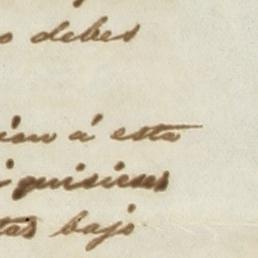 o debes
ion á esta
i quisieses
tas bajo